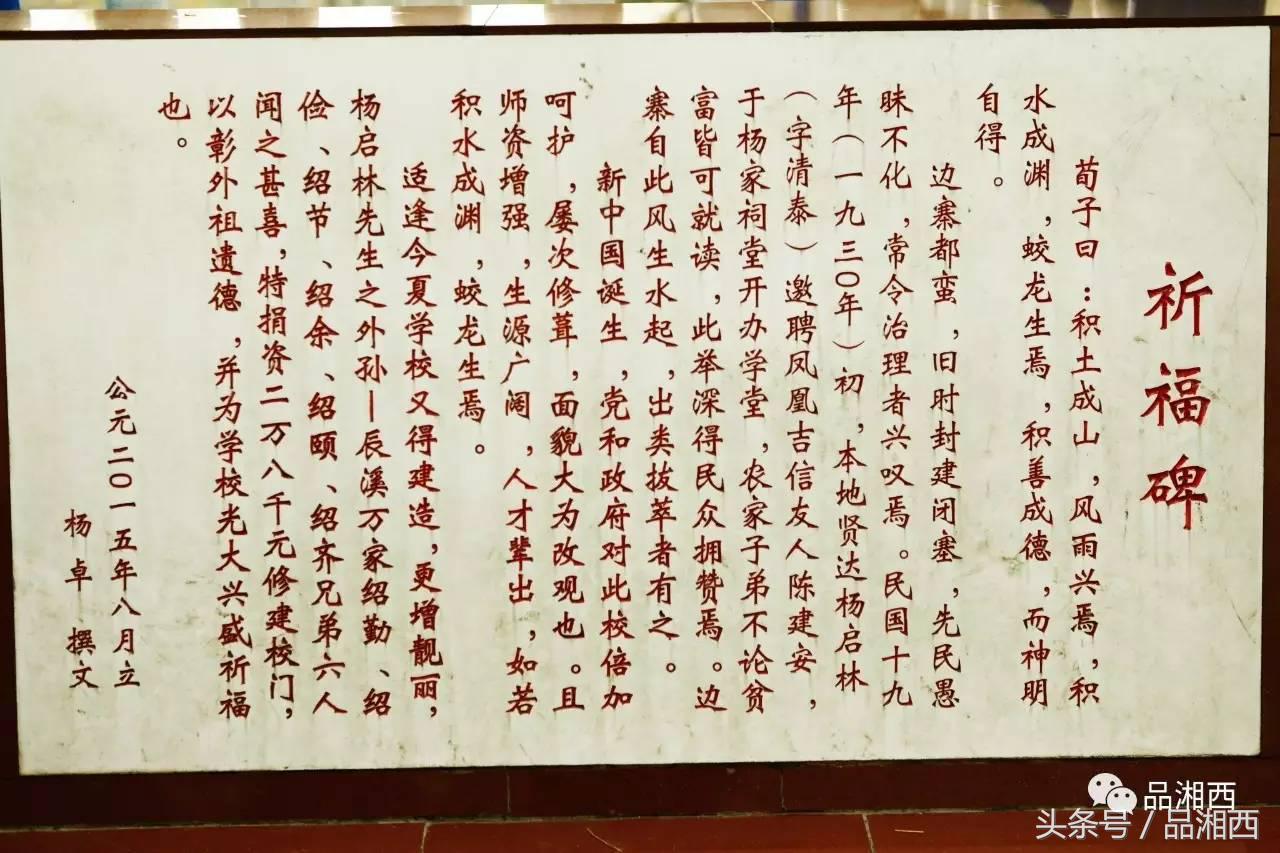 祈福碑
荀子曰：积土成山，风雨兴焉，积
水成渊，蛟龙生焉，积善成德，而神明
自得。
边寨都蛮，旧时封建闭塞，先民愚
昧不化，常令治理者兴叹焉。民国十九
年（一九三〇年）初，本地贤达杨启林
（字清泰）邀聘凤凰吉信友人陈建安，
于杨家祠堂开办学堂，农家子弟不论贫
富皆可就读，此举深得民众拥赞焉。边
寨自此风生水起，出类拔萃者有之。
新中国诞生，党和政府对此校倍加
呵护，屡次修葺，面貌大为改观也。且
师资增强，生源广阔，人才辈出，如若
积水成渊，蛟龙生焉。
适逢今夏学校又得建造，更增靓丽，
杨启林先生之外孙—辰溪万家绍勤、绍
俭、绍节、绍余、绍颐、绍齐兄弟六人
闻之甚喜，特捐资二万八千元修建校门，
以彰外祖遗德，并为学校光大兴盛祈福
也。
公元二〇一五年八月立
杨卓 撰文
品湘西
头条号 / 品湘西